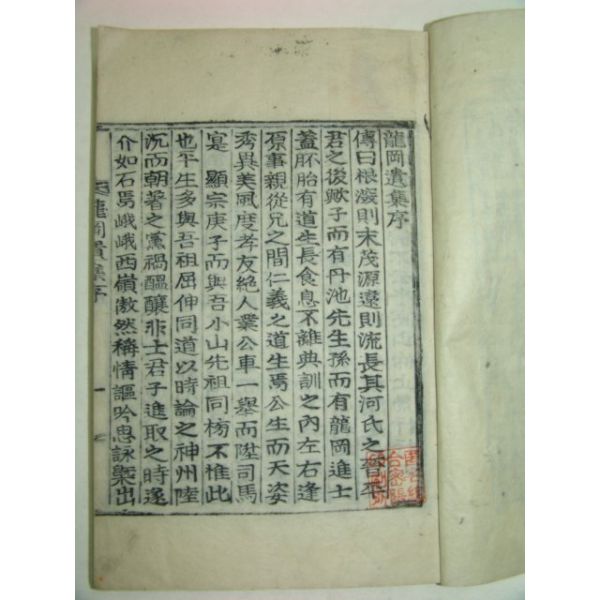 龍岡遺集序
傳曰根深則末茂源遠則流長其河氏之晉平
君之後歟子而有丹池先生孫而有龍岡進士
蓋胚胎有道生長食息不離典訓之內左右逢
原事親從兄之間仁義之道生焉公生而天姿
秀異美風度孝友絶人業公車一擧而陞司馬
寔 顯宗庚子而與吾小山先祖同榜不惟此
也平生多與吾祖屈伸同道以時論之神州陸
沉而朝著之黨禍醞釀非士君子進取之時遂
介如石焉峨峨西嶺漖然稱情謳吟忠詠槩出
龍岡遺集序
一